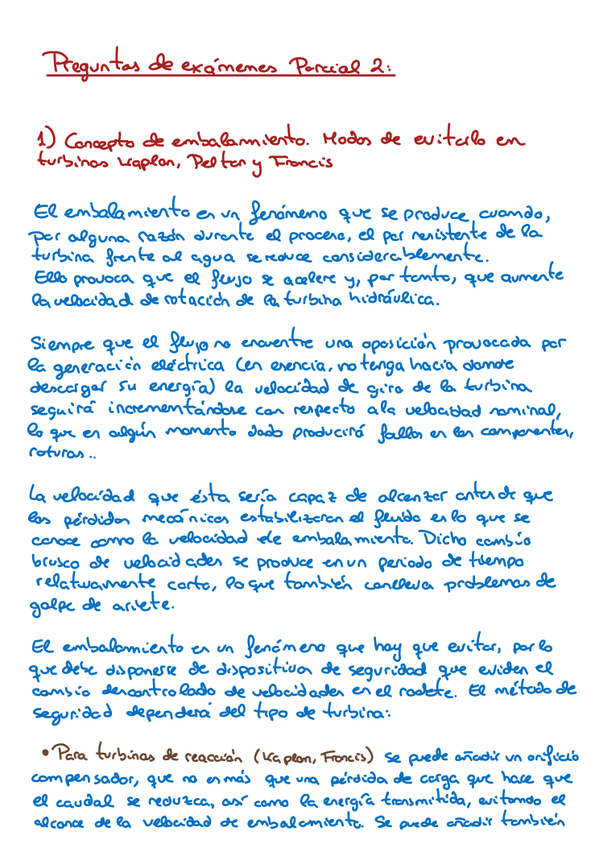 Preguntas de exámenes Parcial 2:
1) Concepto de embalamiento. Modos de evitarlo en
turbinas Kaplan, Pelton y Francis
El embalamiento es un fenómeno que se produce cuando,
por alguna razón durante el proceso, el par resistente de la
turbina frente al agua se reduce considerablemente.
Ello provoca que el flujo se acelere y, por tanto, que aumente
la velocidad de rotación de la turbina hidráulica.
Siempre que el flujo no encuentre una oposición provocada por
la generación eléctrica (en esencia, no tenga hacia donde
descargar su energía) la velocidad de giro de la turbina
seguirá incrementándose con respecto a la velocidad nominal,
lo que en algún momento dado producirá fallos en los componentes,
roturas..
La velocidad que ésta sería capaz de alcanzar antes de que
las pérdidas mecánicas estabilizaran el fluido es lo que se
conoce como la velocidad de embalamiento. Dicho cambio
brusco de velocidades se produce en un periodo de tiempo
relativamente corto, lo que también conlleva problemas de
golpe de ariete.
El embalamiento es un fenómeno que hay que evitar, por lo
que debe disponerse de dispositivos de seguridad que eviden el
cambio descontrolado de velocidades en el rodete. El método de
seguridad dependerá del tipo de turbina:
• Para turbinas de reacción (Kaplan, Francis) se puede añadir un orificio
compensador, que no es más que una pérdida de carga que hace que
el caudal se reduzca, así como la energía transmitida, evitando el
alcance de la velocidad de embalamiento. Se puede añadir también